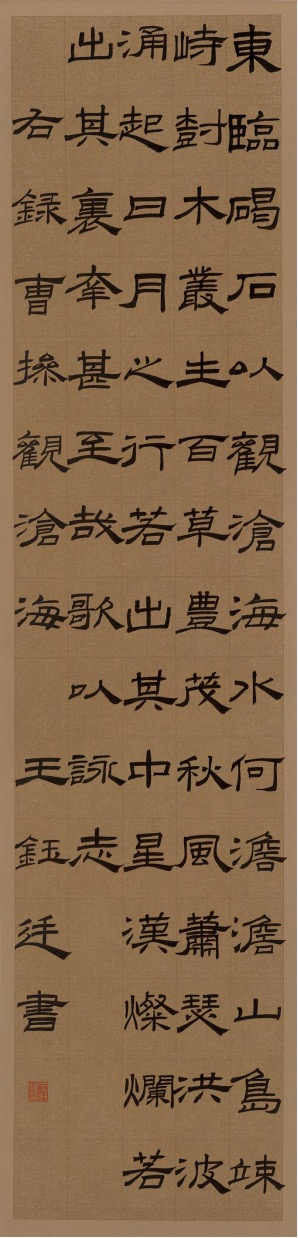 東臨碣石以觀滄海水何澹澹山島竦
峙尌木叢生百草豊茂秋風蕭瑟洪波
涌起日月之行若出其中星漢燦爛若
出其裏幸甚至哉歌以詠志
右録曹操觀滄海 王鈺廷書